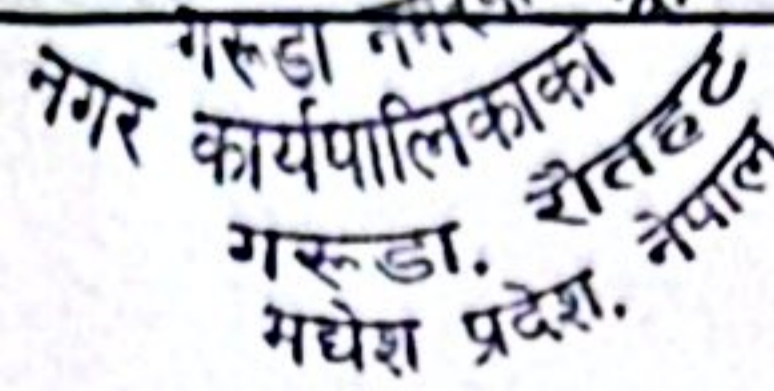 गरूडा
नगर कार्यपालिकाको
गरूडा. रौतहट
मधेश प्रदेश. नेपाल